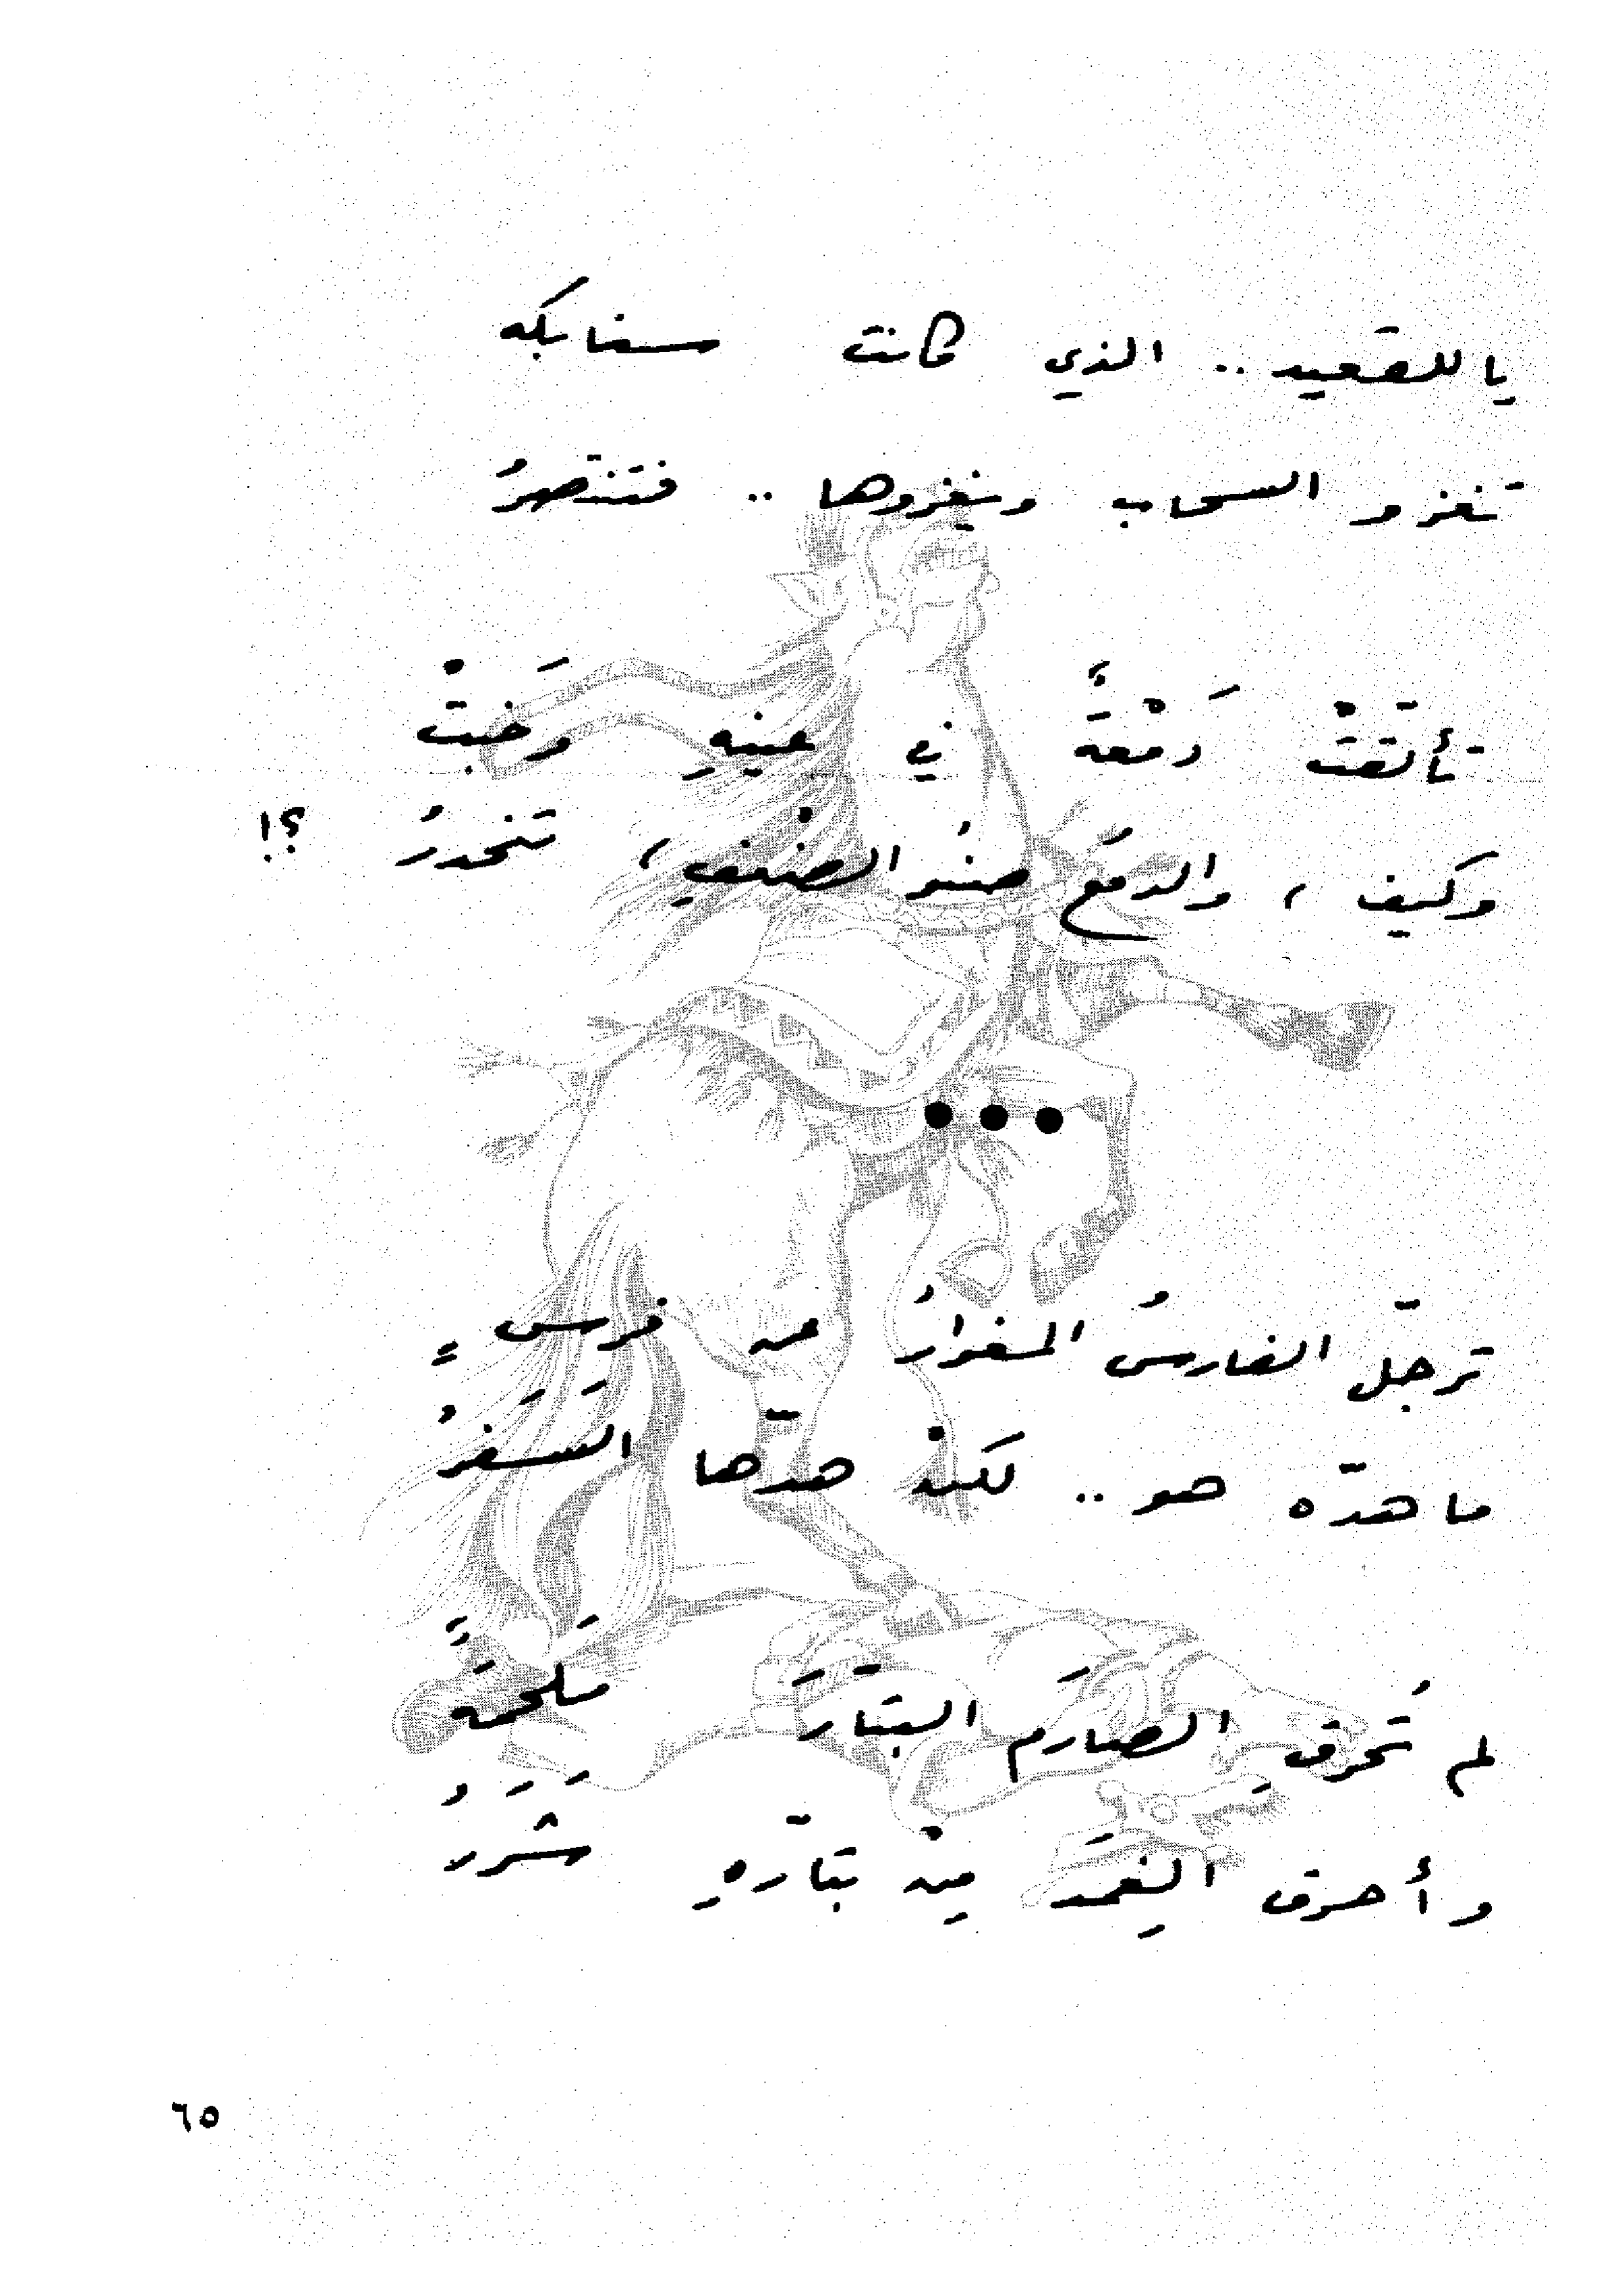 يا للقعيد .. الذي كانت سنابكه
تغزو السحاب ويغزوها .. فتنتصرُ
تألّقتْ دَمْعةً في عينهِ وَخبَتْ
وكيف ، والدمعُ صنُو الضعفِ ، تنحدرُ ؟!
•••
ترجّل الفارسُ المغوارُ عن فرسٍ
ما هدّه هو .. لكنْ هدّها السَّفَرُ
لم تُحرقِ الصارَم البتّارَ مَلحمَةً
وأحرق الغِمَد مِنْ بتّارهِ شَرَرُ
٦٥